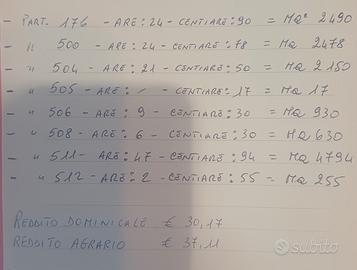 - PART. 176 - ARE: 24 - CENTIARE: 90 = MQ² 2490
- " 500 - ARE: 24 - CENTIARE: 78 = MQ 2478
- " 504 - ARE: 21 - CENTIARE: 50 = MQ 2150
- " 505 - ARE: / - CENTIARE: 17 = MQ 17
- " 506 - ARE: 9 - CENTIARE: 30 = MQ 930
- " 508 - ARE: 6 - CENTIARE: 30 = MQ 630
- " 511 - ARE: 47 - CENTIARE: 94 = MQ 4794
- " 512 - ARE: 2 - CENTIARE: 55 = MQ 255
REDDITO DOMINICALE € 30,17
REDDITO AGRARIO € 37,11
subito